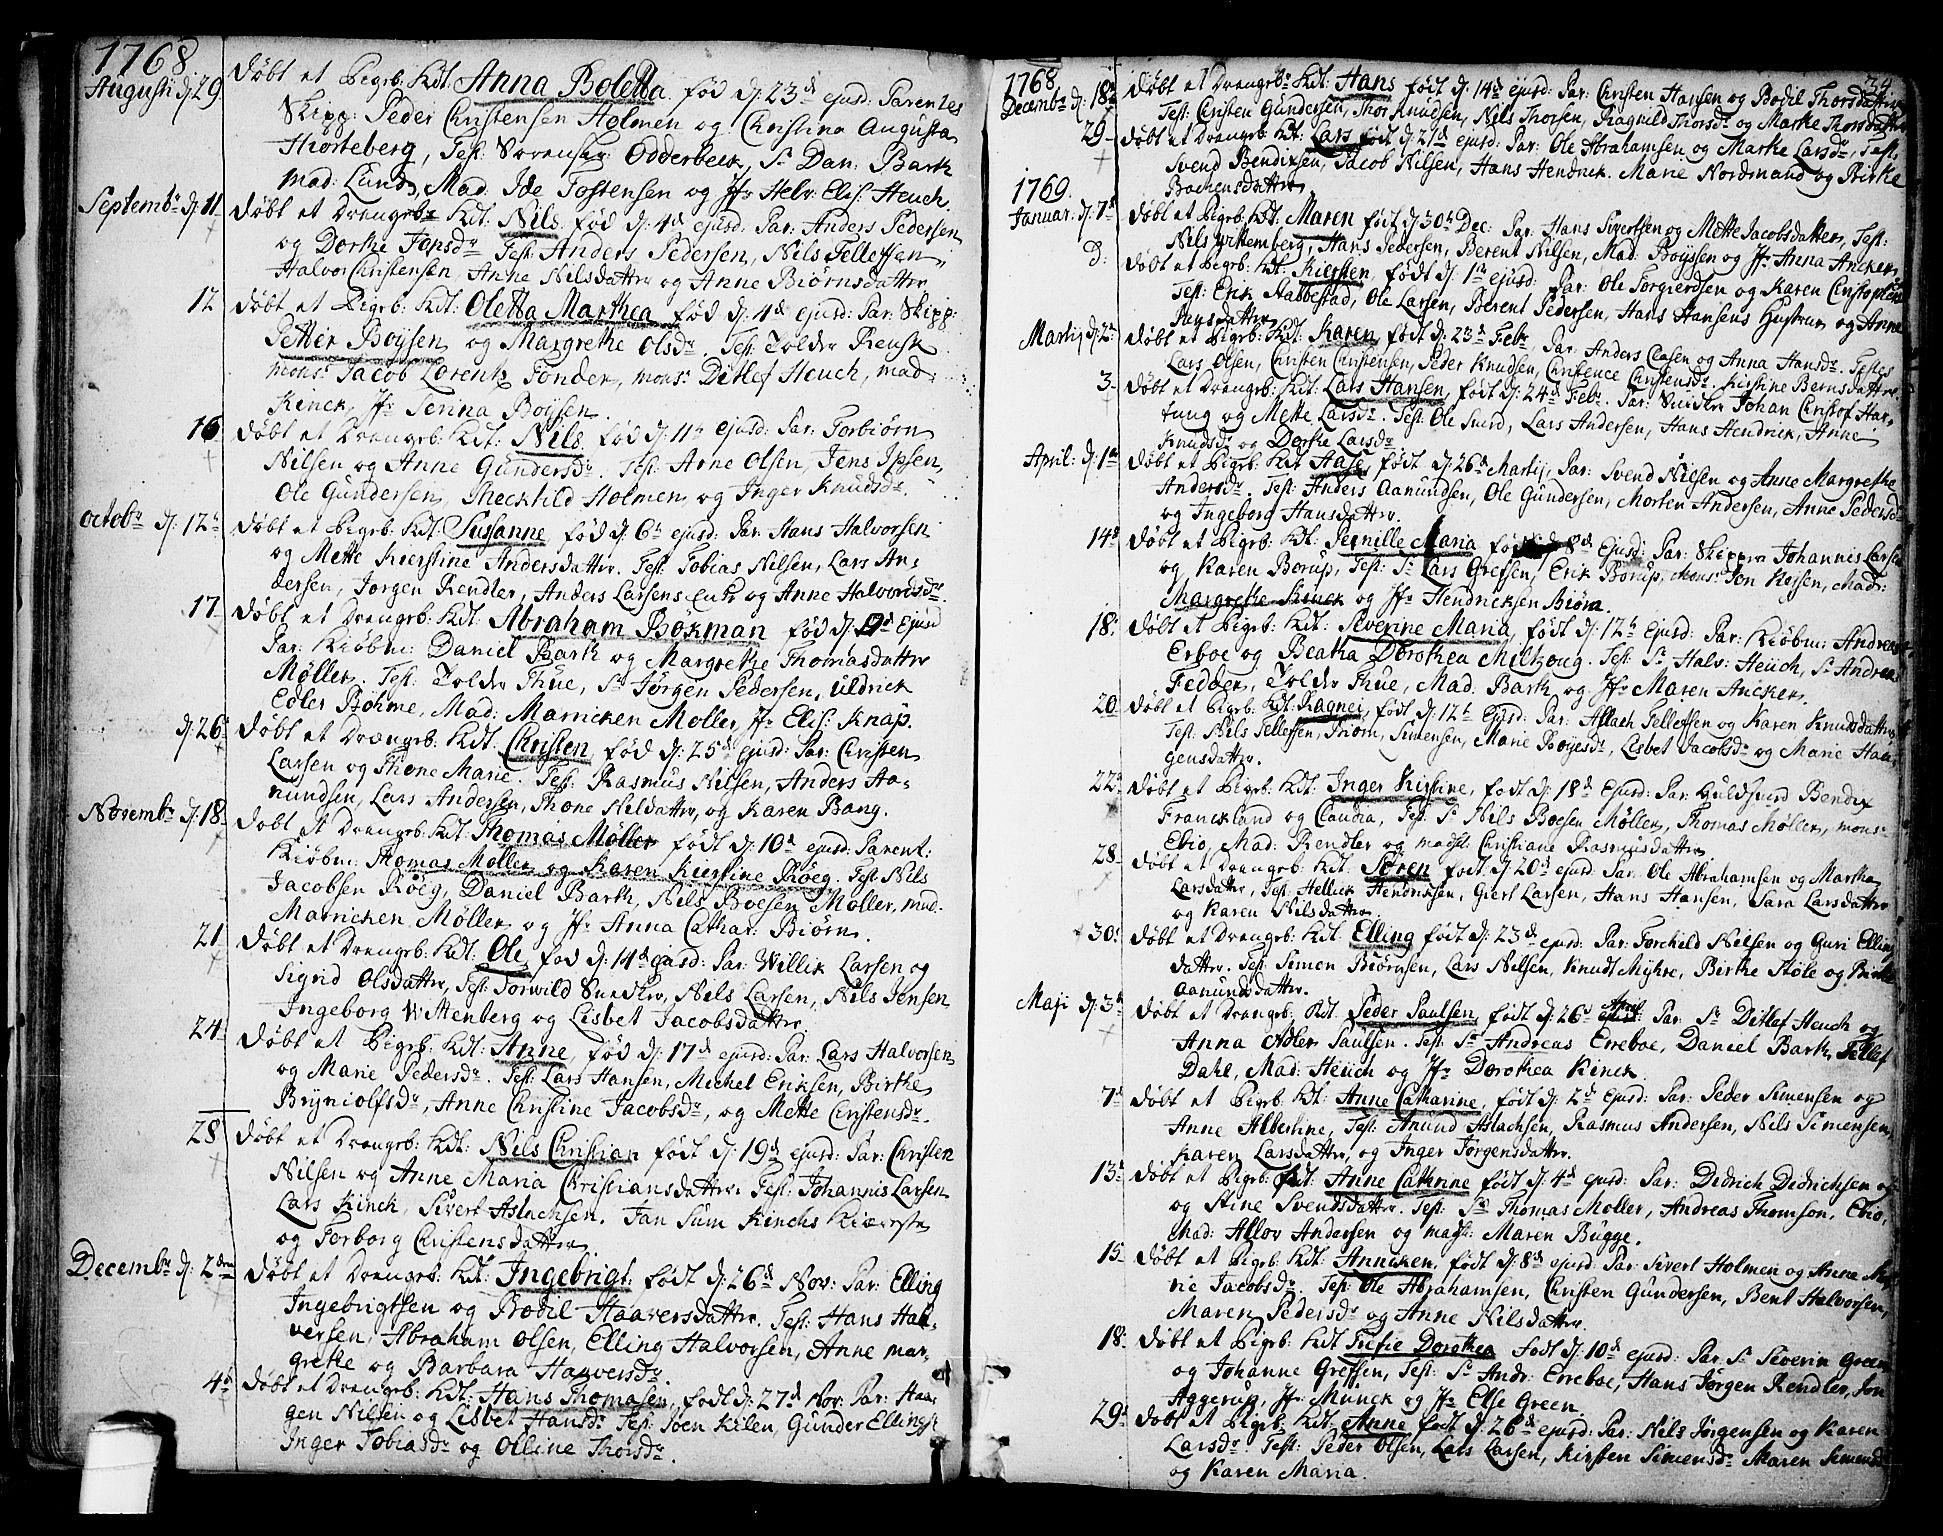 1768
Augusti d: 29 Døbt et Pigeb: Kdt: Anna Boletta fød d: 23d ejusd: Parentes
Skipp: Peder Christensen Holmen og Christina Augusta
Thorteberg, Test: Odderbeck, Sr Dan: Barth
Mad: Lund, Mad. Ide Tostensen og Jfr Helv: Elis: Heuch
Septembr d: 11 Døbt et Drengeb: Kdt: Nils fød d: 4d ejusd: Par: Anders Pedersen
og Dorthe Jensdr Test: Anders Pedersen, Nils Tellefsen,
Halvor Christensen Anne Nilsdattr og Anne Biørnsdattr
12 Døbt et Pigeb: Kdt: Oletta Marthea fød d: 4d ejusd: Par: Skipp:
Petter Boysen og Margrethe Olsdr. Test: Toldr Rensk
mons: Jacob Lorentz Fonder, mons: Ditlef Heuch, mad:
Kinck, Jfr Senna Boysen.
16 Døbt et Drengeb: Kdt: Nils fød d: 11te ejusd: Par: Torbiørn
Nilsen og Anne Gundersdr. Test: Arne Olsen, Jens Ipsen,
Ole Gundersen, Holmen og Inger Knudsdr.
Octobr d: 12te Døbt et Pigeb: Kdt: Susanne fød d: 6te ejusd: Par: Hans Halvorsen
og Mette Kierstine Andersdattr. Test: Tobias Nilsen, Lars An-
dersen, Jørgen Rendler, Anders Larsens og Anne Halvorsdr.
17 Døbt et Drengeb: Kdt: Abraham Bøkman fød d: 9d Ejusd
Par: Kiøbm: Daniel Barth og Margrethe Thomasdattr
Møller. Test: Toldr Thue, Sr Jørgen Pedersen, Uldrick
Edler Bøhme, Mad: Marricken Møller, Jfr Elis: Knap.
d: 26 Døbt et Drengeb: Kdt: Christen fød d: 25d ejusd: Par: Christen
Larsen og Thone Marie. Test: Rasmus Nilsen, Anders Aa-
nundsen, Lars Andersen, Thone Nilsdattr, og Karen Bang.
Novembr d: 18 Døbt et Drengeb: Kdt: Thomas Møller født d: 10d ejusd: Parent:
Kiøbm: Thomas Møller og Karen Kierstine Røeg. Test: Nils
Jacobsen Røeg, Daniel Barth, Nils Boesen Møller, mad.
Marricken Møller og Jfr Anna Cathar: Biørn.
21 Døbt et Drengeb: Kdt: Ole, fød d: 14d ejusd: Par: Willik Larsen og
Sigrid Olsdattr, Test: Torwild, Nils Larsen, Nils Jensen
Ingeborg Wittenberg og Lisbet Jacobsdattr
24 Døbt et Pigeb: Kdt: Anne, fød d: 17d ejusd: Par: Lars Halvorsen
og Marie Pedersdr. Test: Lars Hansen, Michel Eriksen, Birthe
Bryniolfsdr, Anne Christine Jacobsdr, og Mette Christensdr.
28 Døbt et Drengeb: Kdt: Nils Christian født d: 19d ejusd: Par: Christen
Nilsen og Anne Maria Christiansdattr. Test: Johannis Larsen
Lars Kinck, Sivert Aslachsen. Jan Sum Kinchs Kiæreste
og Torborg Christensdattr
Decembr d: 2den Døbt et Drengeb: Kdt: Ingebrigt født d: 26d Nov: Par: Elling
Ingebrigtsen og Bodil Haaversdattr. Test: Hans Hal-
versen, Abraham Olsen, Elling Halvorsen, Anne mar-
grethe og Barbara Haaversdr
4d Døbt et Drengeb: Kdt: Hans Thomasen født d: 27d Nov: Par: Haa-
gen Nilsen og Lisbet Hansdr Test: Kilen, Gunder Ellings:
Inger Tobiasdr og Olline Thorsdr.
1768
Decembr d: 18d Døbt et Drengeb: Kdt: Hans født d: 14d ejusd: Par: Christen Hansen og Bodil Thorsdattr
Test: Christen Gundersen, Thor Knudsen, Nils Thorsen, Ragnild Thorsdr og Marthe Thorsdattr
29 Døbt et Drengeb: Kdt: Lars født d: 21d ejusd: Par: Ole Abrahamsen og Marthe Larsdr, Test:
Svend Bendixsen, Jacob Nilsen, Hans Hendrick: Marie Nordmand og Birthe
Bochensdattr
1769.
Januar: d: 7d Døbt et Pigeb: Kdt: Maren født d: 30te Dec: Par: Hans Sivertsen og Mette Jacobsdatter, Test:
Nils Wittemberg, Hans Pedersen, Berent Nilsen, Mad: Boyssen og Jfr Anna Ancker,
d. Døbt et Pigeb: Kdt: Kiersten født d: 1te ejusd: Par: Ole Torgiersen og Karen Christophers
Test: Erik Stabbestad, Ole Larsen, Berent Pedersen, Hans Hansens Hustrue og Anne
Paulsdattr
Martij d: 2d Døbt et Pigeb: Kdt: Karen født d: 23d Febr Par: Anders Clasen og Anna Hansdr. Testes
Lars Olsen, Christen Christensen, Peder Knudsen, Christence Christensdr. Kirstine Berntsdattr
3 Døbt et Drengeb: Kdt: Lars Hansen, født d: 24d Febr. Par: Johan Christof Har-
tung og Mette Larsdr. Test: Ole Smed, Lars Andersen, Hans Hendrick, Anne
Knudsdr og Dorthe Larsdr
April: d: 1te Døbt et Pigeb: Kdt Aase, født d: 26d Martij, Par: Svend Nilsen og Anne Margrethe
Andersdr. Test: Anders Aanundsen, Ole Gundersen, Morten Andersen, Anne Pedersdr
og Ingeborg Hansdattr.
14d Døbt et Pigeb: Kdt: Pernille Maria født 8d Ejusd: Par: Skippr Johannis Larsen
og Karen Borup, Test: Sr Lars Greffen, Erik Borup, Mons: Jon Koisen, Mad:
Margrethe Kinck og Jfr Hendricksen Biørn.
18 Døbt et Pigeb: Kdt: Severine Maria, født d: 12te Ejusd: Par: Kiøbm: Andreas
Erboe og Beatha Dorothea Milthoug. Test: Sr Halv: Heuch, Sr Andreas
Fedder, Toldr Thue, Mad. Barth, og Jfr Maren Ancker.
20 Døbt et Pigeb: Kdt: Ragnei, født d: 12te Ejusd: Par: Allach Tellefsen og Karen Knudsdattr
Test: Nils Tellefsen, Thom, Simensen, Marie Boyesdr, Lisbet Jacobsdr og Marie Haa-
gensdattr.
22 Døbt et Pigeb: Kdt: Inger Kirstine, født d: 18d Ejusd: Par: Huldsmed Bendix
Franckland og Claudia, Test: Sr Nils Boesen Møller, Thomas Møller, mons:
Ebio, Mad: Rendler og mad: Christiane Rasmusdattr
28 Døbt et Drengeb: Kdt: Søren født d: 20d ejusd: Par: Ole Abrahamsen og Martha
Larsdattr, Test: Hellick Hendricksen, Giert Larsen, Hans Hansen, Sara Larsdattr
og Karen Nilsdattr
30 Døbt et Drengeb: Kdt: Elling født d: 23d ejusd: Par: Torchild Nilsen og Guri Elling
dattr. Test: Simen Biørnsen, Lars Nilsen, Knudt Myhre, Birthe Støle og Birthe
Aanundsdattr.
Maji d: 3d Døbt et Drengeb: Kdt: Peder Paulsen, født d: 26d April Par: Sr Ditlef Heuch og
Anna Adler Paulsen. Test: Sr Andreas Erreboe, Daniel Barth, Tellef
Dahl, Mad: Heuch og Jfr Dorothea Kinck.
7d Døbt et Pigeb: Kdt: Anne Catharine, født d: 2d Ejusd: Par: Peder Simensen og
Anne Albertine, Test: Amund Aslachsen, Rasmus Andersen, Nils Simensen,
Karen Larsdattr, og Inger Jørgensdattr.
13d Døbt et Pigeb: Kdt: Anne Cathrine født d: 4d ejusd: Par: Dedrich Dedrichsen og
og Stine Svendsdattr. Test: Sr Thomas Møller, Andreas Thomson, Ebio,
Mad: Allov Andersen og mad: Maren Bugge.
15 Døbt et Pigeb: Kdt: Annicken, født d: 8d ejusd: Par: Sivert Holmen og Anne Ma-
rie Jacobsdr Test: Ole Abrahamsen, Christen Gundersen, Bent Halvorsen,
Maren Pedersdr og Anne Nilsdattr.
18 Døbt et Pigeb: Kdt: Dorothea født d: 10d ejusd: Par: Sr Severin Green
og Johanne Greffen, Test: Sr Andr: Erreboe, Hans Jørgen Rendler, Jon
Aggerup, Jfr Munck og Jfr Else Green.
29d Døbt et Pigeb: Kdt: Anne født d: 26d ejusd: Par: Nils Jørgensen og Karen
Larsdr Test: Peder Olsen, Lars Larsen, Kirsten Simensdr Maren Simensd
og Karen Maria.